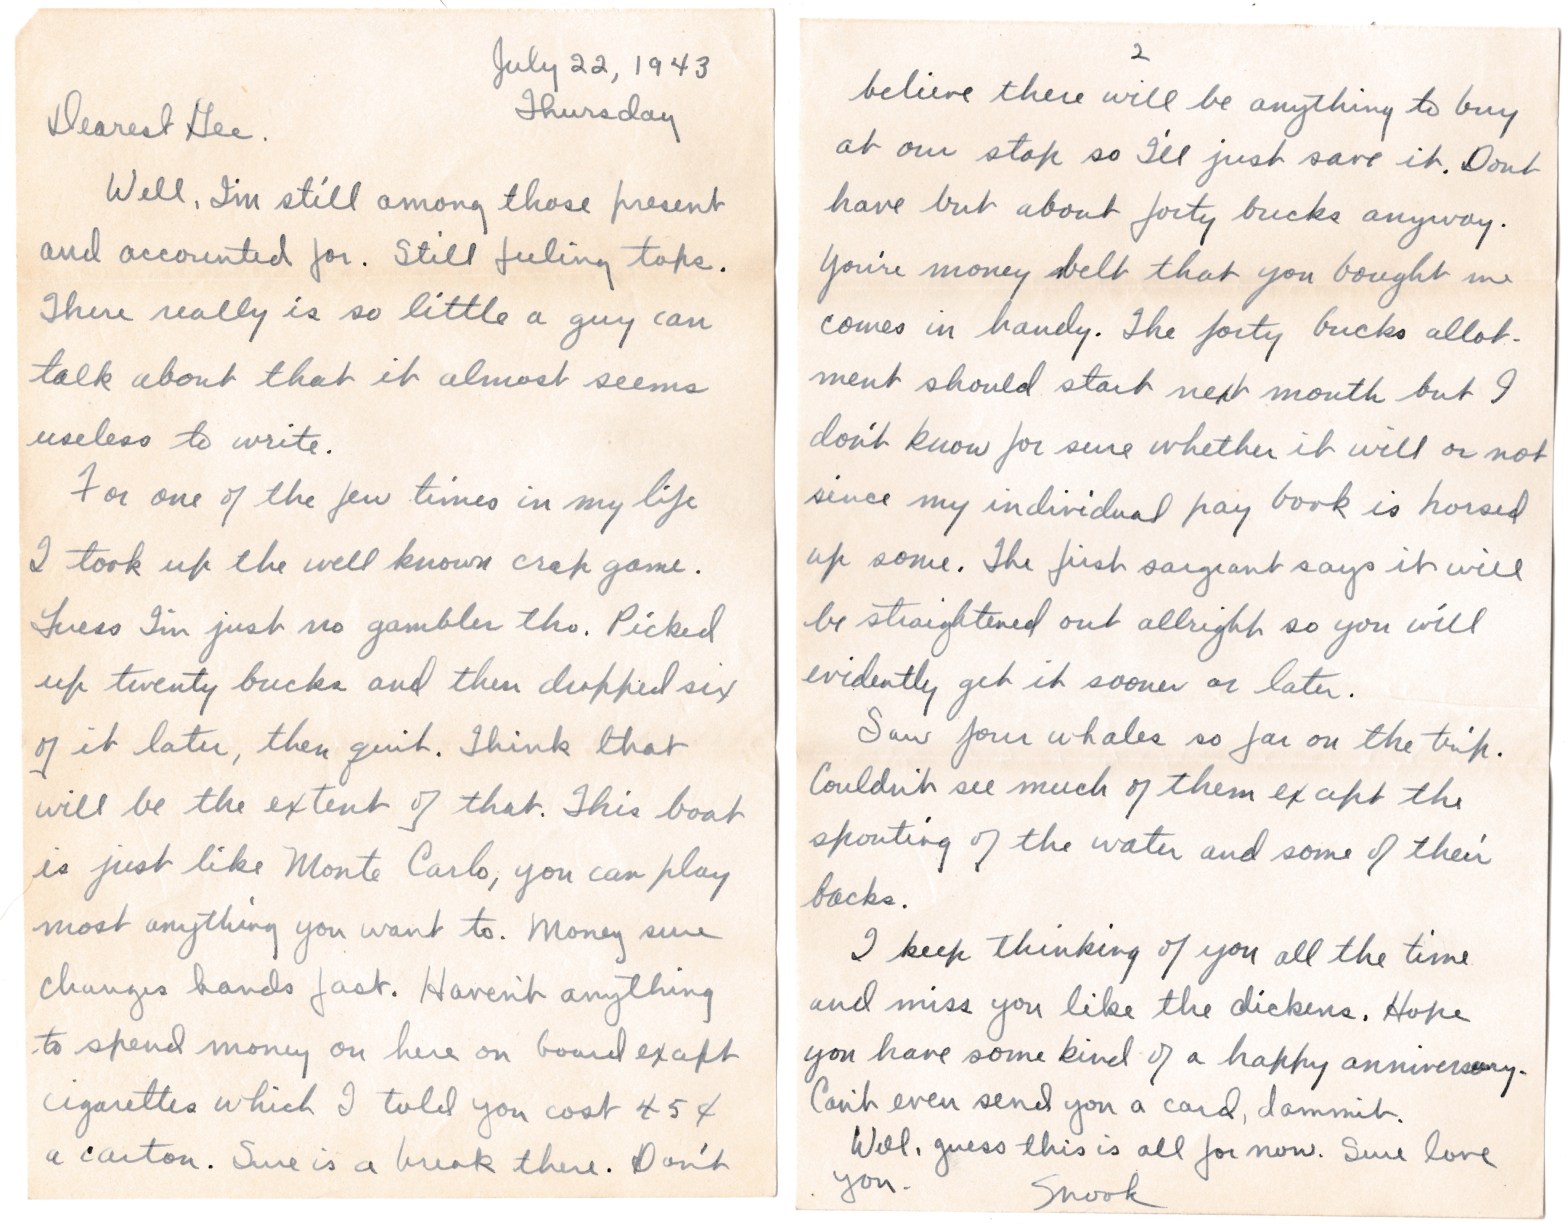 July 22, 1943
Thursday
Dearest Gee.
Well, I'm still among those present
and accounted for. Still feeling tops.
There really is so little a guy can
talk about that it almost seems
useless to write.
For one of the few times in my life
I took up the well known crap game.
Guess I'm just no gambler tho. Picked
up twenty bucks and then dropped six
of it later, then quit. Think that
will be the extent of that. This boat
is just like Monte Carlo, you can play
most anything you want to. Money sure
changes hands fast. Haven't anything
to spend money on here on board exapt
cigarettes which I told you cost 45¢
a carton. Sure is a break there. Don't
2
believe there will be anything to buy
at our stop so I'll just save it. Dont
have but about forty bucks anyway.
You're money belt that you bought me
comes in handy. The forty bucks allot-
ment should start next month but I
don't know for sure whether it will or not
since my individual pay book is horsed
up some. The first sargeant says it will
be straightened out allright so you will
evidently get it sooner or later.
Saw four whales so far on the trip.
Couldn't see much of them exapt the
spouting of the water and some of their
backs.
I keep thinking of you all the time
and miss you like the dickens. Hope
you have some kind of a happy anniversary.
Can't even send you a card, dammit.
Well, guess this is all for now. Sure love
you.
Snook